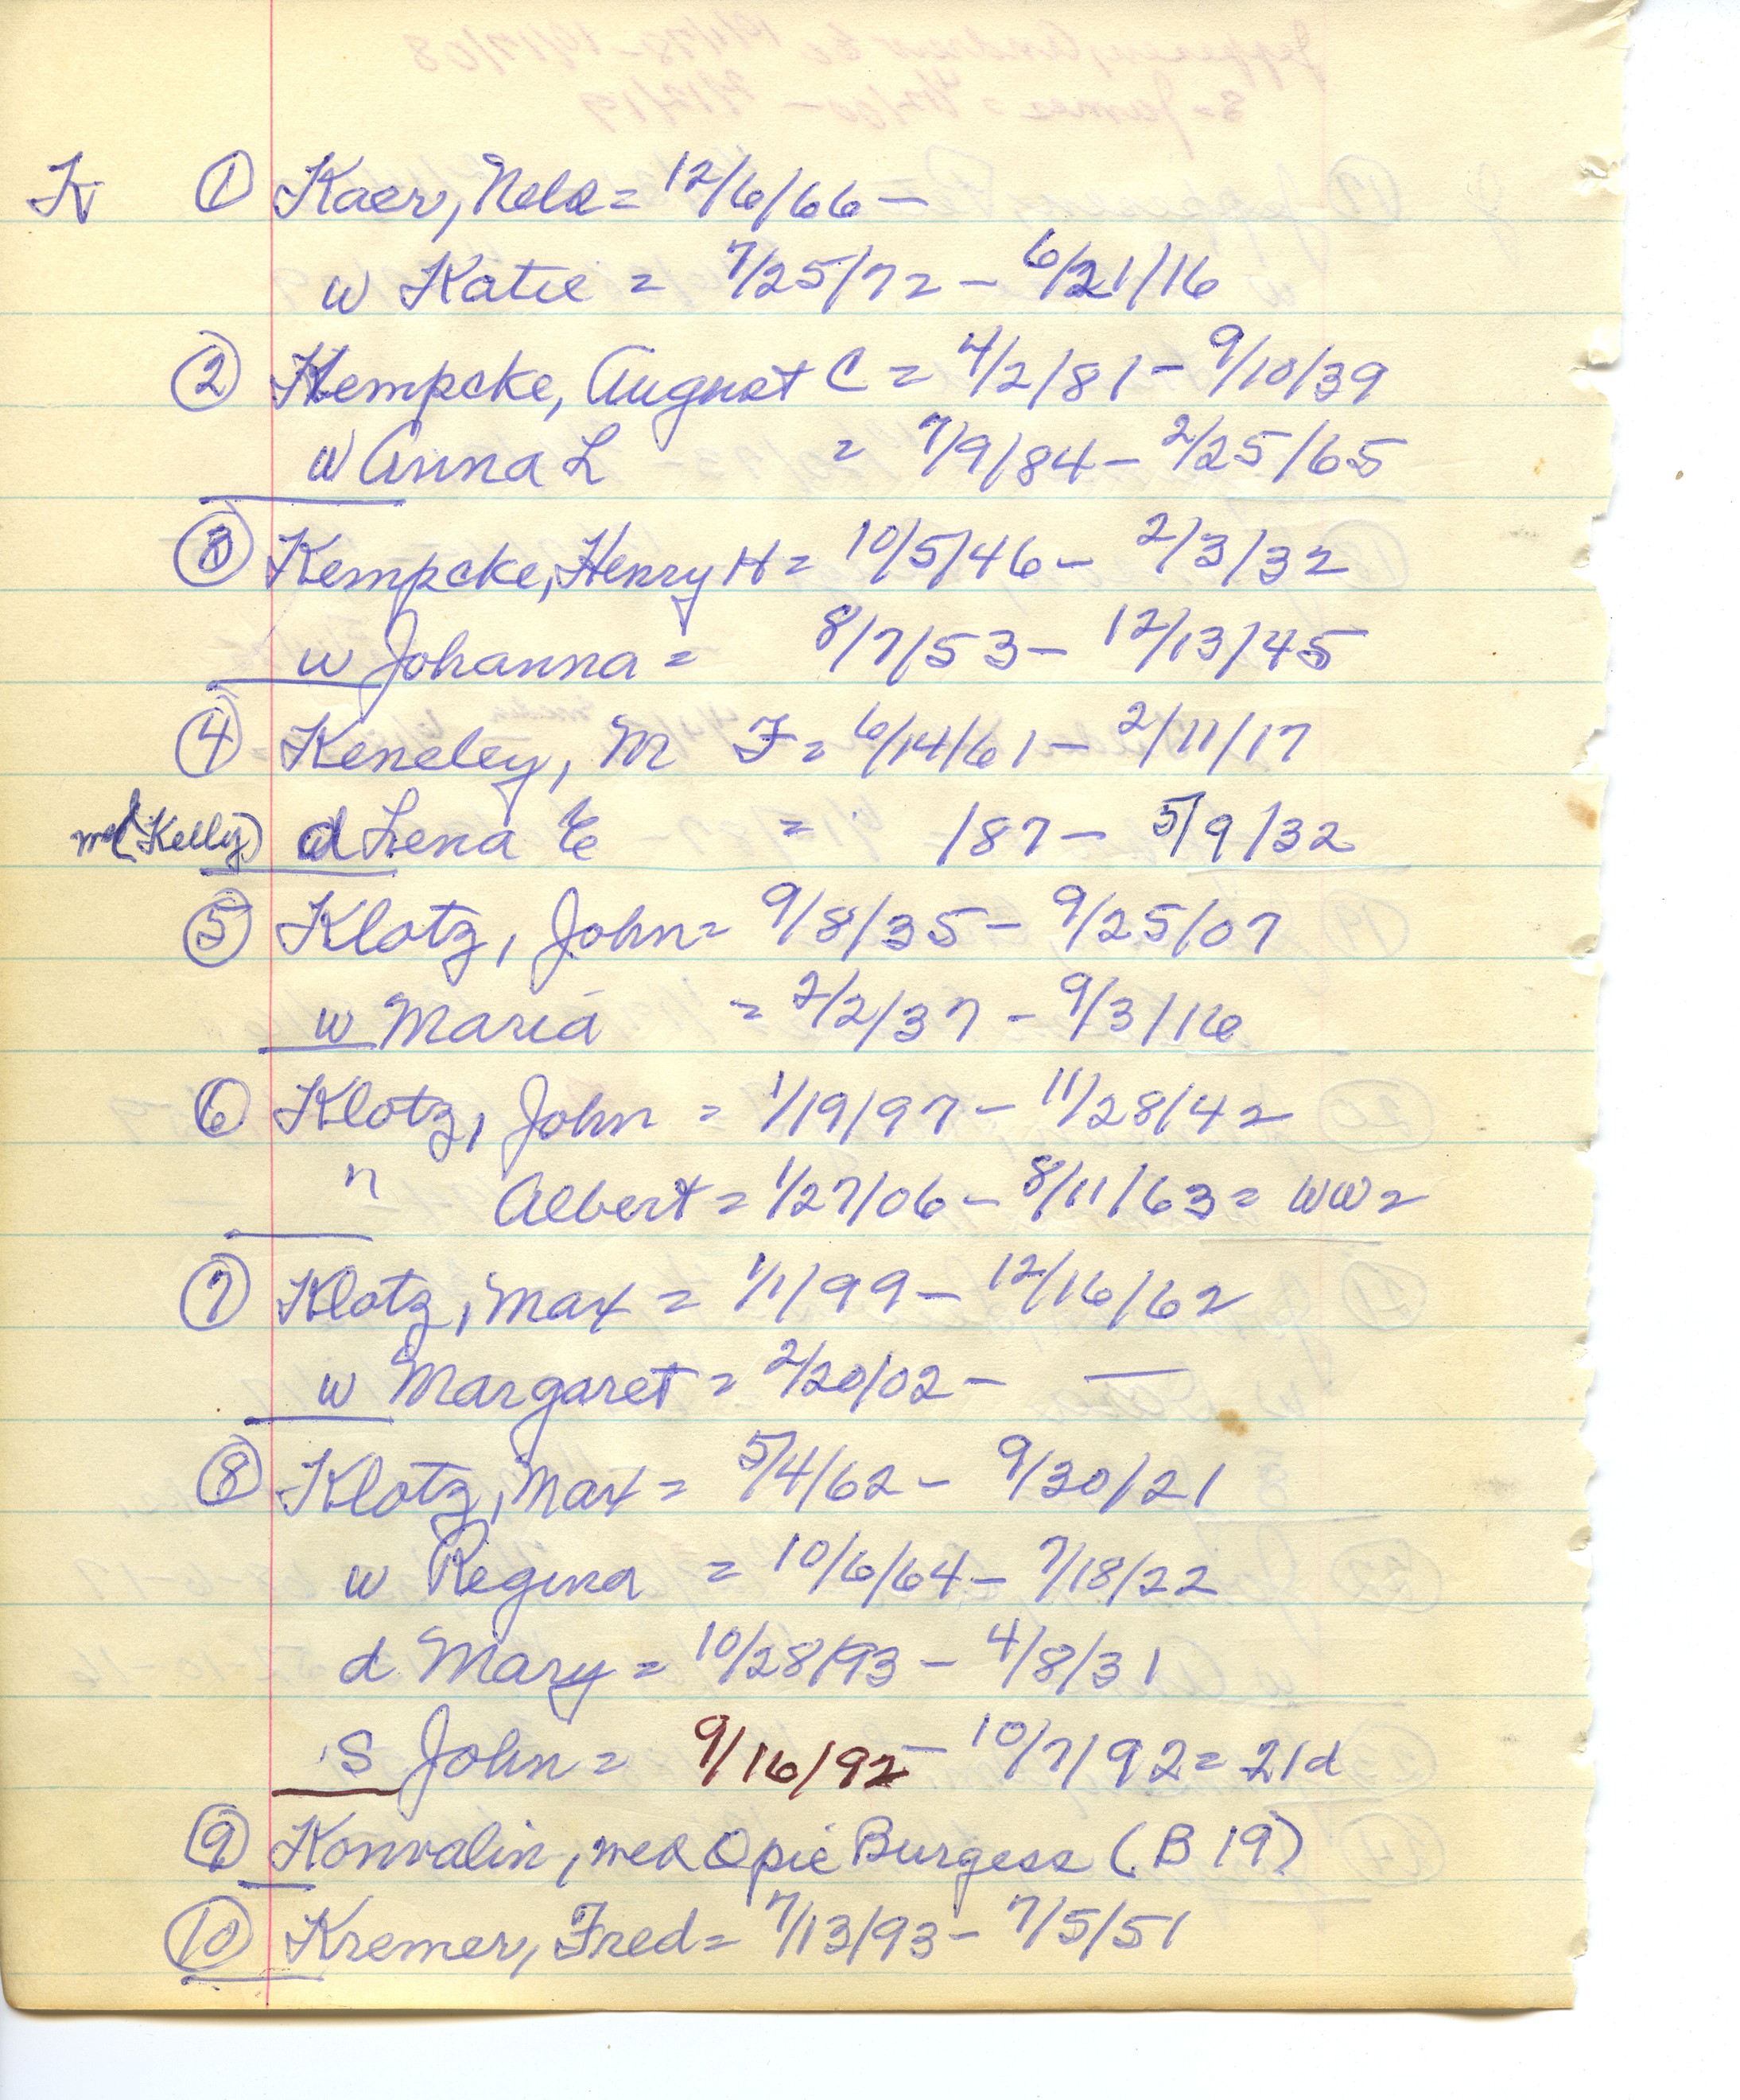 K ① Kaer, Nels = 12/6/66 —
w Katie = 7/25/72 — 6/21/16
② Kempcke, August C = 4/2/81 — 9/10/39
w Anna L = 7/9/84 — 2/25/65
③ Kempcke, Henry H = 10/5/46 — 2/3/32
w Johanna = 8/7/53 — 12/13/45
④ Keneley, M F = 6/14/61 — 2/11/17
(Kelly) d Lena E = /87 — 5/9/32
⑤ Klotz, John = 9/8/35 — 9/25/07
w Maria = 2/2/37 — 9/3/16
⑥ Klotz, John = 1/19/97 — 11/28/42
" Albert = 1/27/06 — 8/11/63 = WW2
⑦ Klotz, Max = 1/1/99 — 12/16/62
w Margaret = 2/20/02 — —
⑧ Klotz, Max = 5/4/62 — 9/30/21
w Regina = 10/6/64 — 7/18/22
d Mary = 10/28/93 — 4/8/31
s John = 9/16/92 — 10/7/92 = 21d
⑨ Konvalin, née Opie Burgess (B 19)
⑩ Kremer, Fred = 7/13/93 — 7/5/51